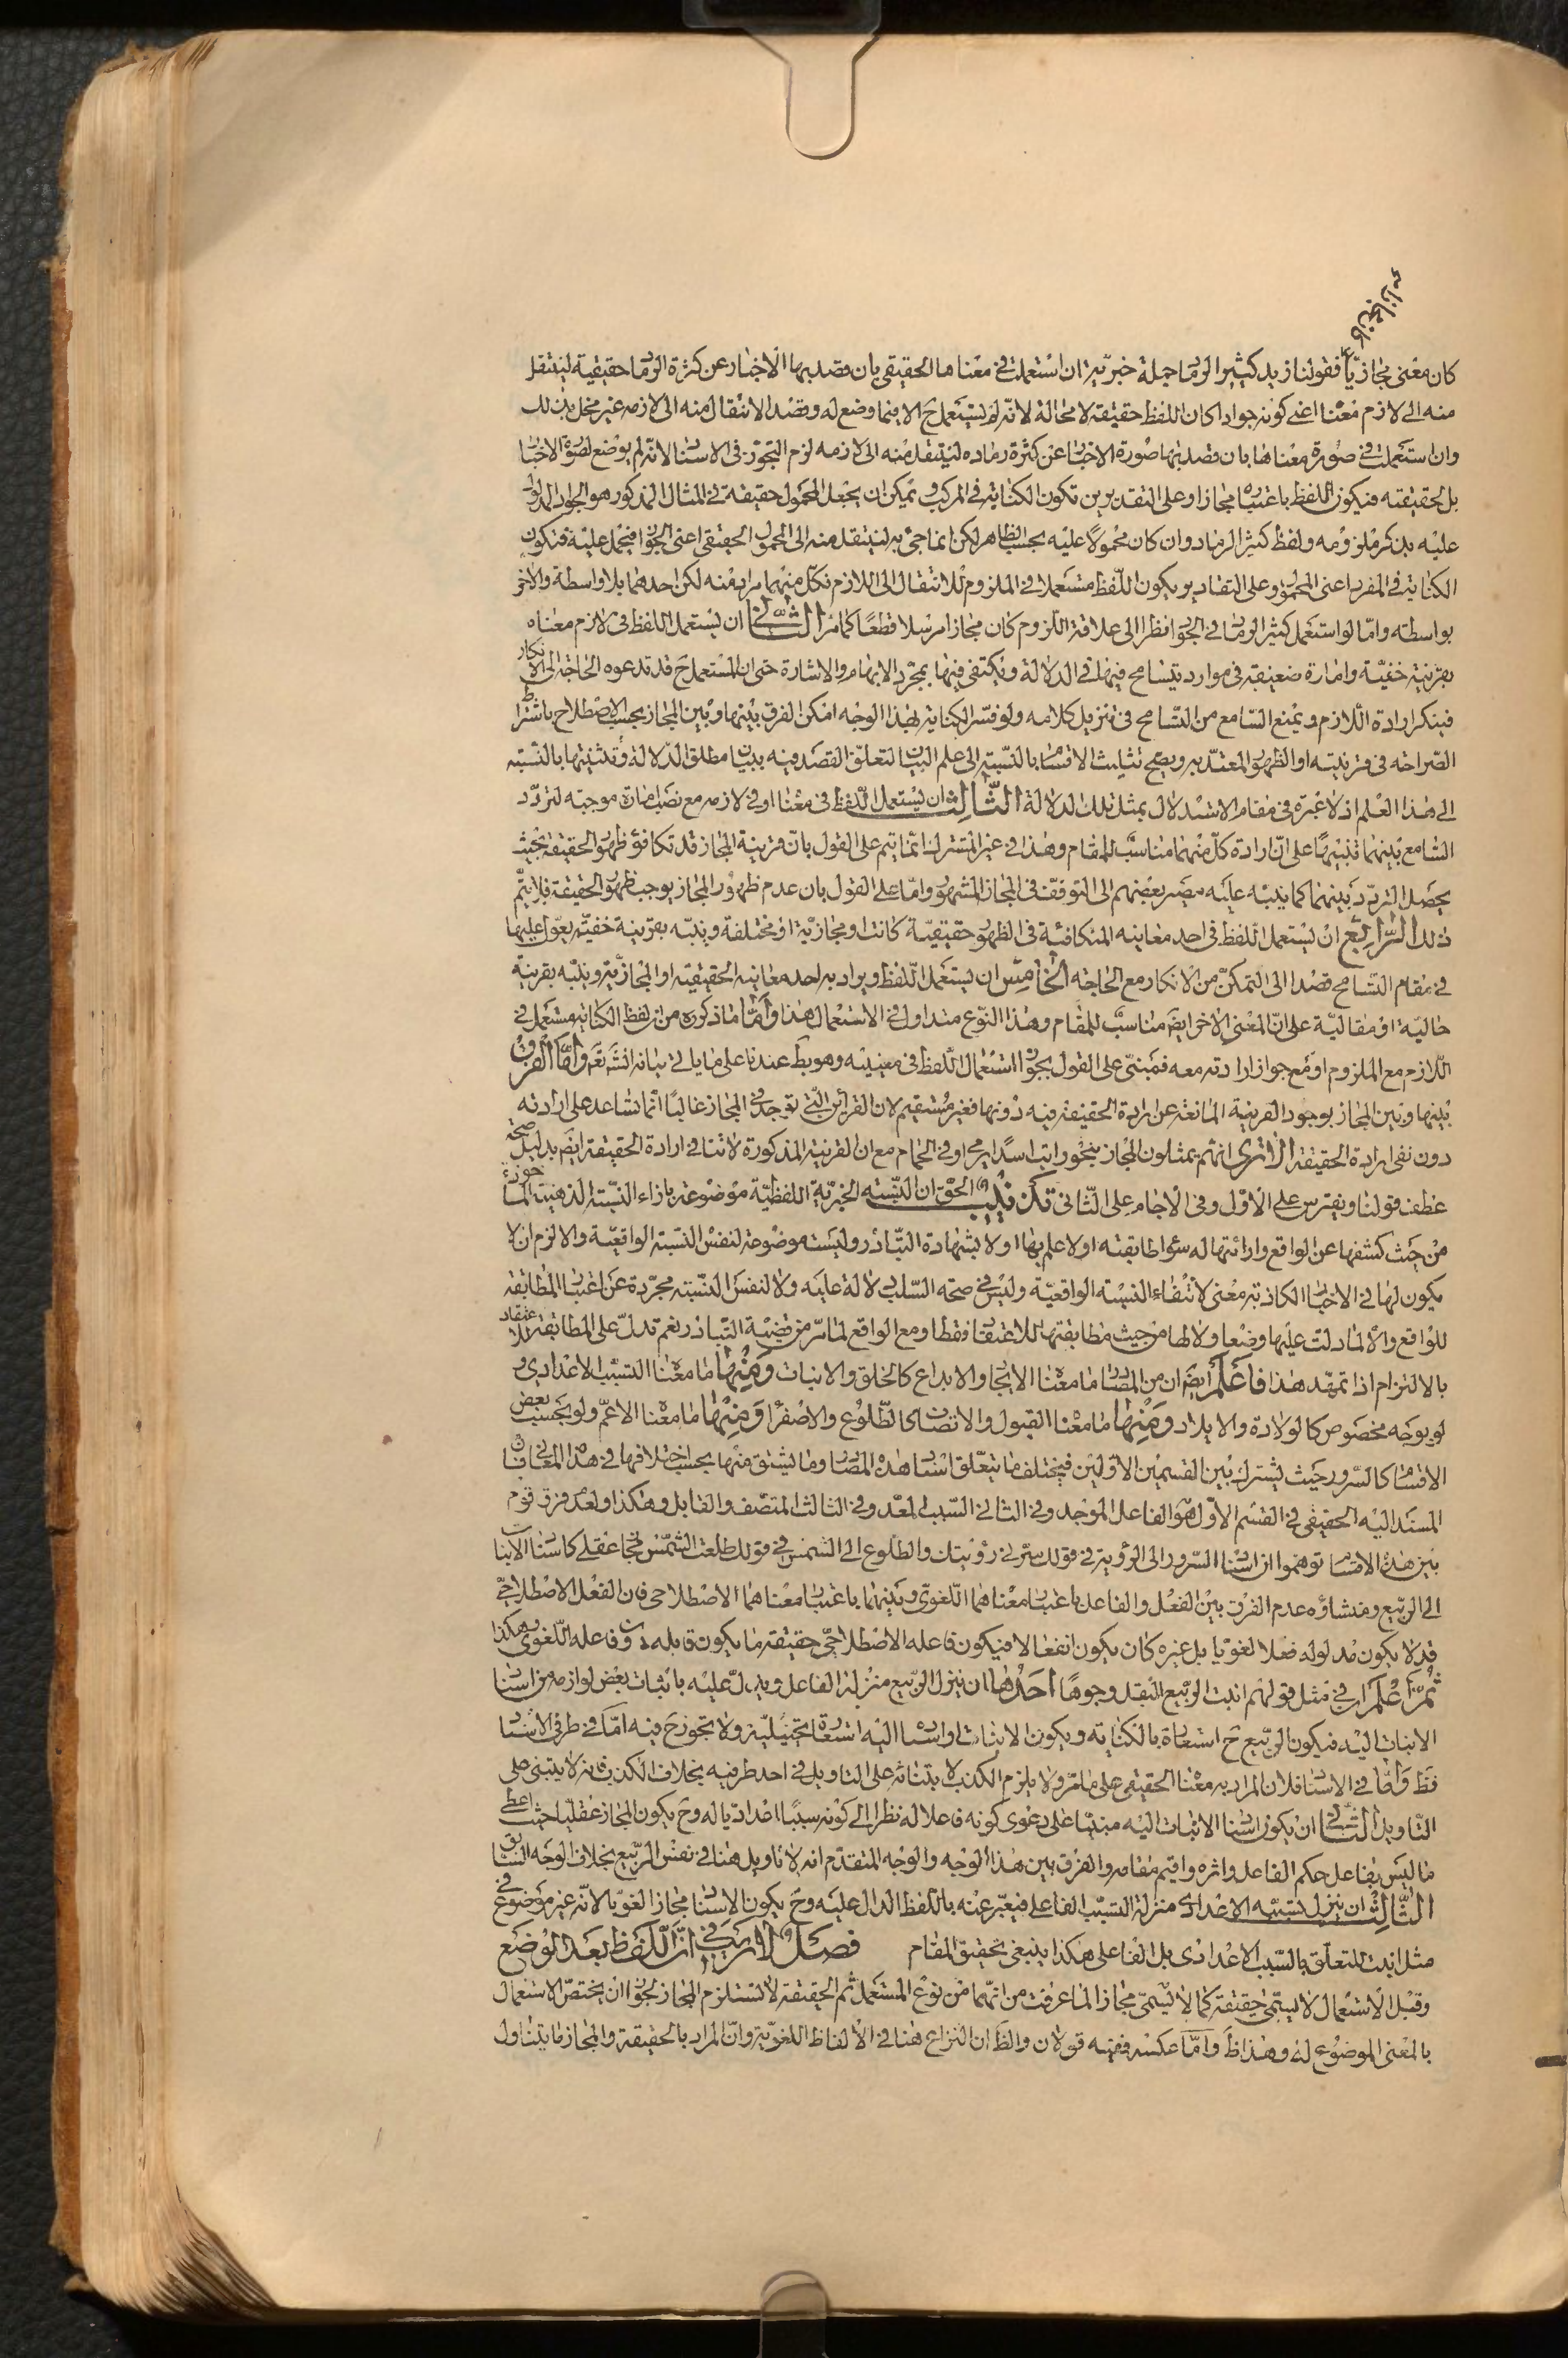 كان معنى مجازيّا فقولنا زيد كثير الرماد جملة خبريّة ان استعملت في معناها الحقيقي بان قصد بها الاخبار عن كثرة الرماد حقيقة لينتقل
منه الى لازم معناه اعني كونه جوادا كان اللفظ حقيقة لا محالة لانّه لم يستعمل ح الا فيما وضع له وقصد الانتقال منه الى لازمه غير مخل بذلك
وان استعملت في صورة معناها بان قصد بها صورة الاخبار عن كثرة رماده لينتقل منه الى لازمه لزم التجوّز في الاسناد لانّه لم يوضع لصورة الاخبار
بل لحقيقته فيكون اللفظ باعتباره مجازا وعلى التقديرين تكون الكناية في المركب ويمكن ان يجعل المحمول حقيقة في المثال المذكور هو الجواد المدلول
عليه بذكر ملزومه ولفظ كثير الرماد وان كان محمولا عليه بحسب الظاهر لكن انما جئ به لينتقل منه الى المحمول الحقيقي اعني الجواد فيحمل عليه فتكون
الكناية في المفرد اعني المحمول وعلى التقادير يكون اللّفظ مستعملا في الملزوم للانتقال الى اللازم فكل منهما مراد منه لكن احدهما بلا واسطة والاخر
بواسطته وامّا لو استعمل كثير الرماد في الجواد نظرا الى علاقة اللّزوم كان مجازا مرسلا قطعًا كما مرّ الثّاني ان يستعمل اللفظ في لازم معناه
بقرينة خفيّة وامارة ضعيفة في موارد يتسامح فيها في الدلالة ويكتفى فيها بمجرّد الايهام والاشارة حتى ان المستعمل ح قد تدعوه الحاجة الى الانكار
فينكر ارادة اللازم ويمنع السّامع من التّسامح في تنزيل كلامه ولو فسّر الكناية بهذا الوجه امكن الفرق بينها وبين المجاز بحسب الاصطلاح باشتراط
الصّراحة في قرينته او الظهور المعتدّ به ويصح تثليث الاقسام بالنّسبة الى علم البيان لتعلّق القصد فيه ببيان مطلق الدّلالة وتثنيتها بالنّسبة
الى هذا العلم اذ لا عبرة في مقام الاستدلال بمثل تلك الدلالة الثّالث ان يستعمل اللّفظ في معناه او في لازمه مع نصب امارة موجبة لتردّد
السّامع بينهما تنبيهًا على انّ ارادة كلّ منهما مناسب للمقام وهذا في غير المشترك انّما يتم على القول بانّ قرينة المجاز قد تكافؤ ظهور الحقيقة بحيث
يحصل التردّد بينهما كما ينبّه عليه مصير بعضهم الى التوقّف في المجاز المشهور وامّا على القول بان عدم ظهور المجاز يوجب ظهور الحقيقة فلا يتمّ
ذلك الرّابع ان يستعمل اللّفظ في احد معانيه المتكافئة في الظهور حقيقيّة كانت او مجازيّة او مختلفة وينبّه بقرينة خفيّة يعوّل عليها
في مقام التّسامح قصدا الى التمكّن من الانكار مع الحاجة الخامس ان يستعمل اللّفظ ويراد به احد معانيه الحقيقيّة او المجازيّة وينبّه بقرينة
حاليّة او مقاليّة على انّ المعنى الاخر ايضا مناسب للمقام وهذا النّوع متداول في الاستعمال هذا وامّا ما ذكروه من ان لفظ الكناية مستعمل في
اللّازم مع الملزوم او مع جواز ارادته معه فمبنىّ على القول بجواز استعمال اللّفظ في معنييه وهو بط عندنا على ما ياتي بيانه انشاء تعم وامّا الفرق
بينها وبين المجاز بوجود القرينة المانعة عن ارادة الحقيقة فيه دونها فغير مستقيم لان القرائن الّتي توجد في المجاز غالبًا انّما تساعد على ارادته
دون نفى ارادة الحقيقة الا ترى انّهم يمثلون للمجاز بنحو رايت اسدًا يرمي او في الحمام مع ان القرينة المذكورة لا تنافي ارادة الحقيقة ايضا بدليل صحّة
عطف قولنا ويفترس على الاوّل وفي الاجام على الثّاني تذنيب الحقّ ان النّسبة الخبريّة اللفظيّة موضوعة بازاء النّسبة الذهنيّة الماخوذة
من حيث كشفها عن الواقع وارائتها له سواء طابقته اولا علم بها اولا بشهادة التّبادر وليست موضوعة لنفس النّسبة الواقعيّة والا لزم ان لا
يكون لها في الاخبار الكاذبة معنى لانتفاء النّسبة الواقعيّة وليس في صحة السّلب دلالة عليه ولا لنفس النّسبة مجرّدة عن اعتبار المطابقة
للواقع والا لما دلّت عليها وضعا ولا لها من حيث مطابقتها للاعتقاد فقط او مع الواقع لما مرّ من قضيّة التّبادر نعم تدلّ على المطابقة للاعتقاد
بالالتزام اذا تمهّد هذا فاعلم ايضا ان من المصادر ما معناه الايجاد والابداع كالخلق والانبات ومنها ما معناه التسبّب الاعدادي و
لو بوجه مخصوص كالولادة والايلاد ومنها ما معناه القبول والاتصاف كالطّلوع والاصفرار ومنها ما معناه الاعمّ ولو بحسب بعض
الاقسام كالسّرور حيث يشترك بين القسمين الاوّلين فيختلف ما يتعلّق اسناد هذه المصادر وما يشتق منها بحسب اختلافها في هذه المعاني فان
المسند اليه الحقيقي في القسم الاوّل هو الفاعل الموجد وفي الثاني السّبب المعدّ وفي الثالث المتّصف والقابل وهكذا ولعدم فرق قوم
بين هذه الاقسام توهموا ان اسناد السّرور الى الرؤية في قولك سرّتني رؤيتك والطلوع الى الشمس في قولك طلعت الشّمس مجاز عقلي كاسناد الانبات
الى الرّبيع ومنشاؤه عدم الفرق بين الفعل والفاعل باعتبار معناهما اللّغويّ وبينهما باعتبار معناهما الاصطلاحي فان الفعل الاصطلاحيّ
قد لا يكون مدلوله فعلا لغويّا بل غيره كان يكون انفعالا فيكون فاعله الاصطلاحيّ حقيقة ما يكون قابله دون فاعله اللّغوي وهكذا
ثمّ اعلم ان في مثل قولهم انبت الرّبيع البقل وجوها احدها ان ينزل الرّبيع منزلة الفاعل ويدلّ عليه باثبات بعض لوازمه من اسناد
الانبات اليه فيكون الرّبيع ح استعارة بالكناية ويكون الانبات او اسناده اليه استعارة تخييليّة ولا تجوّز ح فيه امّا في طرفي الاسناد
فظ وامّا في الاسناد فلان المراد به معناه الحقيقي على ما مرّ ولا يلزم الكذب لابتنائه على التاويل في احد طرفيه بخلاف الكذب فانه لا يبتني على
التّاويل الثّاني ان يكون اسناد الانبات اليه مبنيّا على دعوى كونه فاعلا له نظرا الى كونه سببًا اعداديّا له وح يكون المجاز عقليّا حيث اعطى
ما ليس بفاعل حكم الفاعل واثره واقيم مقامه والفرق بين هذا الوجه والوجه المتقدّم انه لا تاويل هنا في نفس الرّبيع بخلاف الوجه السّابق
الثّالث ان ينزل تسبّبه الاعدادي منزلة التسبّب الفاعلي فيعبّر عنه باللّفظ الدال عليه وح يكون الاسناد مجازا لغويّا لانّه غير موضوع في
مثل انبت للتعلّق بالسّبب الاعدادي بل الفاعلي هكذا ينبغي تحقيق المقام فصل لا ريب في انّ اللّفظ بعد الوضع
وقبل الاستعمال لا يسمّى حقيقة كما لا يسمّى مجازا لما عرفت من انّهما من نوع المستعمل ثم الحقيقة لا تستلزم المجاز لجواز ان يختصّ الاستعمال
بالمعنى الموضوع له وهذا ظ وامّا عكسه ففيه قولان والظ ان النزاع هنا في الالفاظ اللغويّة وانّ المراد بالحقيقة والمجاز ما يتناول